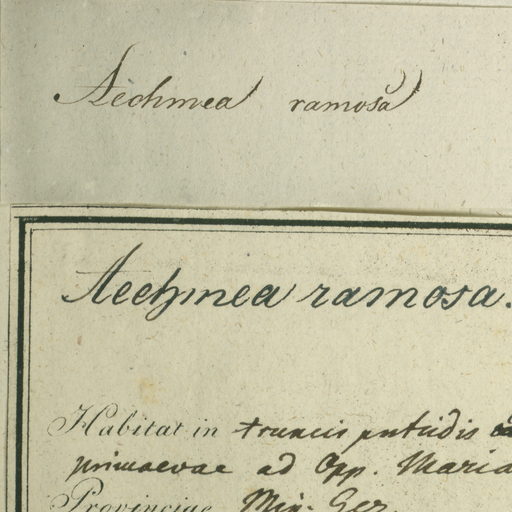 Aechmea ramosa
Aechmea ramosa.
Habitat in truncis putridis
primaevae ad Opp. Maria
Provinciae Min. Ger.